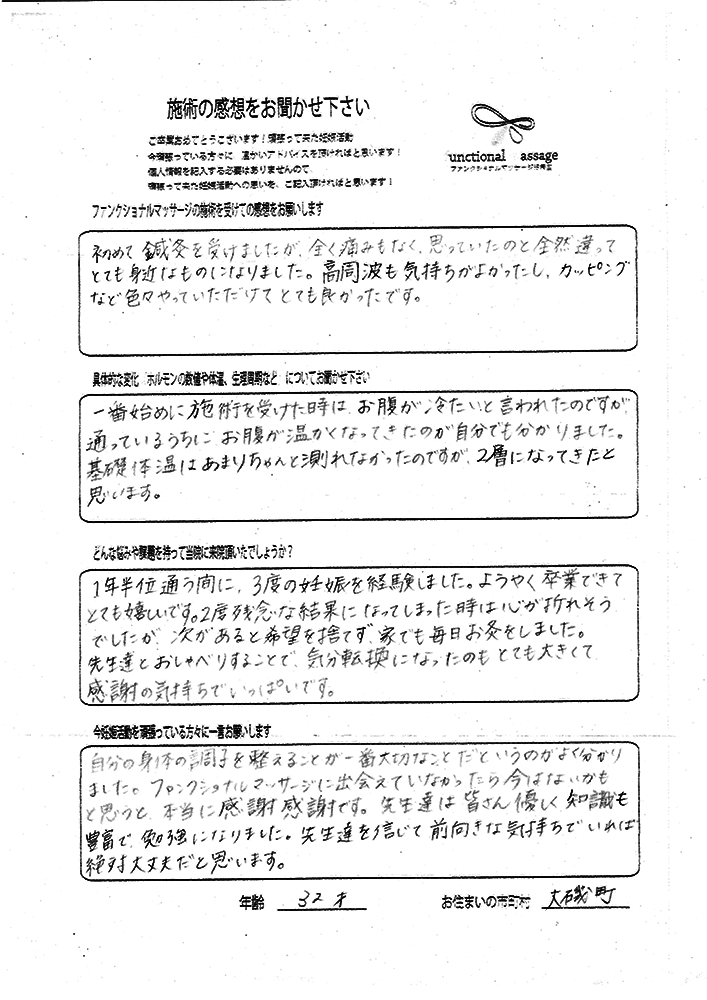 施術の感想をお聞かせ下さい
ご卒業おめでとうございます!頑張って来た妊娠活動
今頑張っている方々に 温かいアドバイスを頂ければと思います!
個人情報を記入する必要はありませんので、
頑張って来た妊娠活動への思いを、ご記入頂ければと思います!
unctional assage
ファンクショナルマッサージ
ファンクショナルマッサージの施術を受けての感想をお願いします
初めて鍼灸を受けましたが、全く痛みもなく、思っていたのと全然違って
とても身近なものになりました。高周波も気持ちがよかったし、カッピング
など色々やっていただけてとても良かったです。
具体的な変化「ホルモンの数値や体温、生理周期など」についてお聞かせ下さい
一番始めに施術を受けた時は、お腹が冷たいと言われたのですが、
通っているうちに お腹が温かくなってきたのが自分でも分かりました。
基礎体温はあまりちゃんと測れなかったのですが、2層になってきたと
思います。
どんな悩みや課題を持って当院に来院頂いたでしょうか?
1年半位通う間に、3度の妊娠を経験しました。ようやく卒業できて
とても嬉しいです。2度残念な結果になってしまった時は心が折れそう
でしたが、次があると希望を捨てず、家でも毎日お灸をしました。
先生達とおしゃべりすることで、気分転換になったのもとても大きくて
感謝の気持ちでいっぱいです。
今妊娠活動を頑張っている方々に一言お願いします
自分の身体の調子を整えることが一番大切なことだというのがよく分かり
ました。ファンクショナルマッサージに出会えていなかったら今はないかも
と思うと、本当に感謝感謝です。先生達は皆さん優しく知識も
豊富で、勉強になりました。先生達を信じて前向きな気持ちでいれば
絶対大丈夫だと思います。
年齢 32才 お住まいの市町村 大磯町